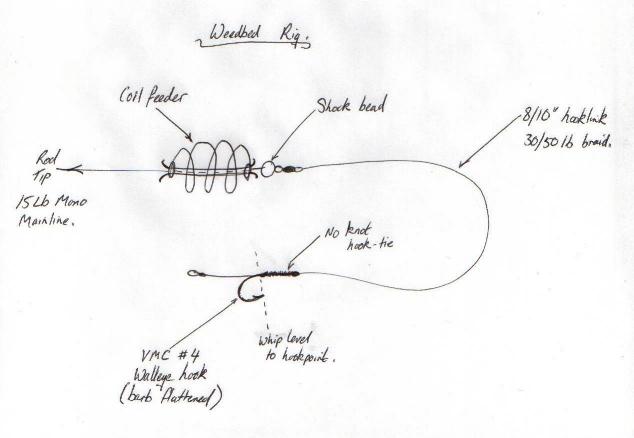 Weedbed Rig.
Coil feeder
Shock bead
8/10" hooklink
30/50 lb braid.
Rod
Tip
15Lb Mono
Mainline.
No knot
hook-tie
Whip level
to hookpoint.
VMC #4
Walleye hook
(barb flattened)